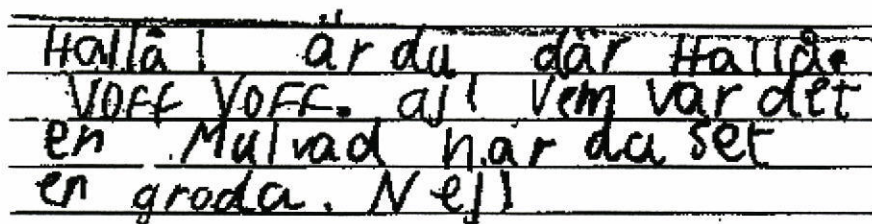 Hallå! är du där Hallå.
Voff Voff. aj! Vem var det
en Mulvad har du set
en groda. Nej!